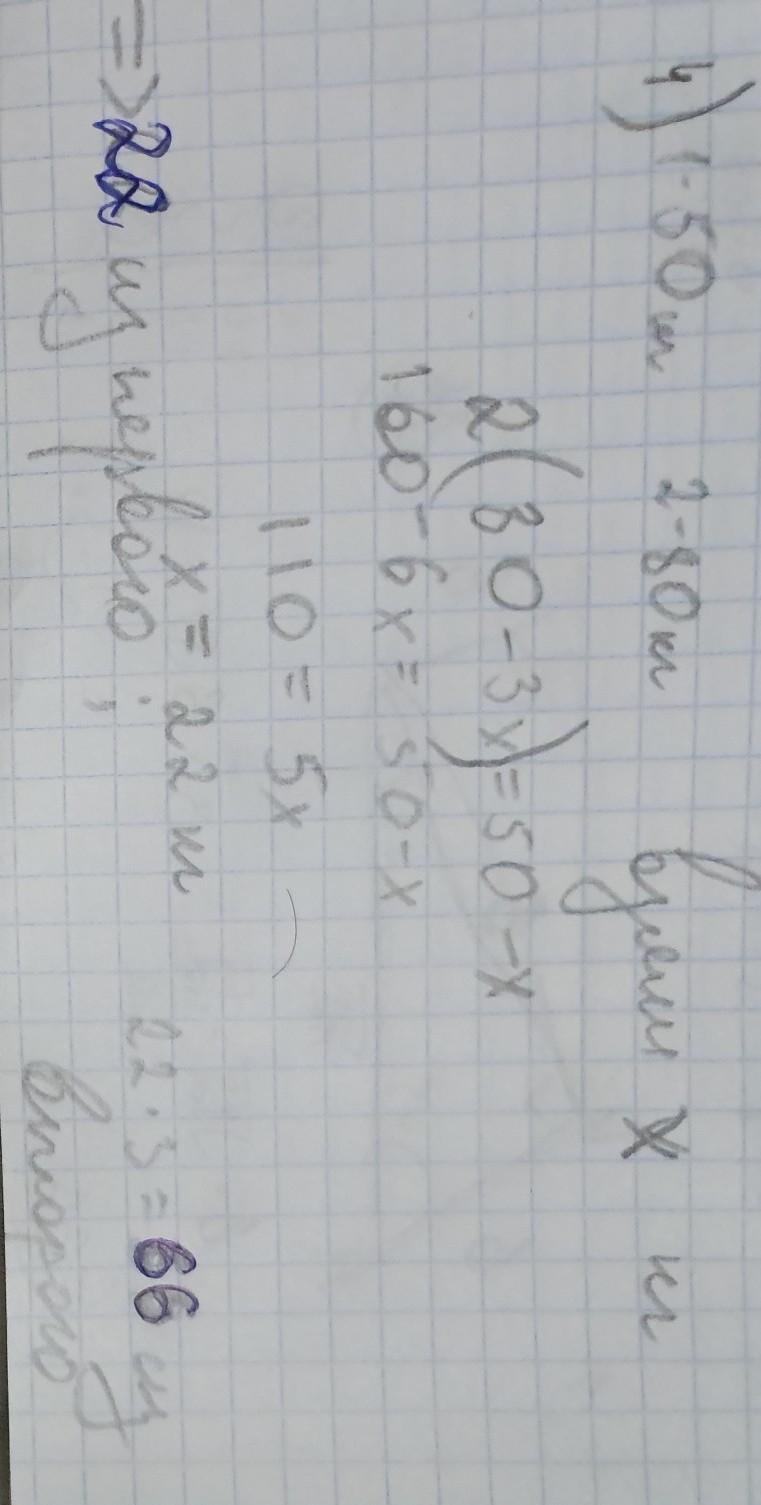 4) 1-50кг 2-80кг взяли x кг
2(80-3x)=50-x
160-6x=50-x
110=5x
x=22кг 22·3=66 из
=> 22 из первого; второго